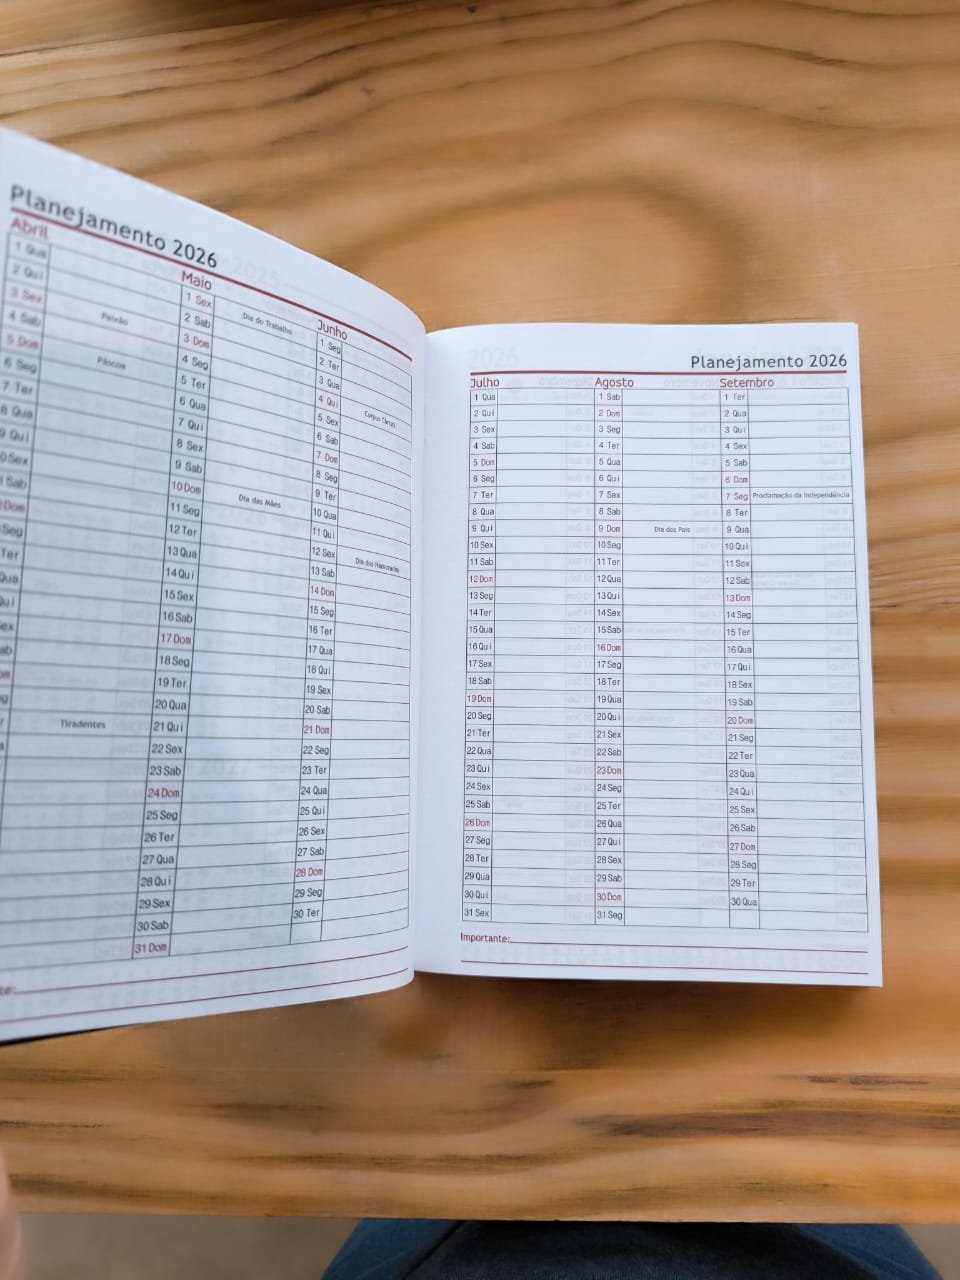 Planejamento 2026
Abril
1 Qua
2 Qui
3 Sex Paixão
4 Sab
5 Dom Páscoa
6 Seg
7 Ter
8 Qua
9 Qui
0 Sex
1 Sab
Dom
Seg
Ter
Qua
Qui
ex
ab
Tiradentes
Maio
1 Sex Dia do Trabalho
2 Sab
3 Dom
4 Seg
5 Ter
6 Qua
7 Qui
8 Sex
9 Sab
10 Dom Dia das Mães
11 Seg
12 Ter
13 Qua
14 Qui
15 Sex
16 Sab
17 Dom
18 Seg
19 Ter
20 Qua
21 Qui
22 Sex
23 Sab
24 Dom
25 Seg
26 Ter
27 Qua
28 Qui
29 Sex
30 Sab
31 Dom
Junho
1 Seg
2 Ter
3 Qua
4 Qui Corpus Christi
5 Sex
6 Sab
7 Dom
8 Seg
9 Ter
10 Qua
11 Qui
12 Sex Dia dos Namorados
13 Sab
14 Dom
15 Seg
16 Ter
17 Qua
18 Qui
19 Sex
20 Sab
21 Dom
22 Seg
23 Ter
24 Qua
25 Qui
26 Sex
27 Sab
28 Dom
29 Seg
30 Ter
te:
Planejamento 2026
Julho
1 Qua
2 Qui
3 Sex
4 Sab
5 Dom
6 Seg
7 Ter
8 Qua
9 Qui
10 Sex
11 Sab
12 Dom
13 Seg
14 Ter
15 Qua
16 Qui
17 Sex
18 Sab
19 Dom
20 Seg
21 Ter
22 Qua
23 Qui
24 Sex
25 Sab
26 Dom
27 Seg
28 Ter
29 Qua
30 Qui
31 Sex
Agosto
1 Sab
2 Dom
3 Seg
4 Ter
5 Qua
6 Qui
7 Sex
8 Sab
9 Dom Dia dos Pais
10 Seg
11 Ter
12 Qua
13 Qui
14 Sex
15 Sab
16 Dom
17 Seg
18 Ter
19 Qua
20 Qui
21 Sex
22 Sab
23 Dom
24 Seg
25 Ter
26 Qua
27 Qui
28 Sex
29 Sab
30 Dom
31 Seg
Setembro
1 Ter
2 Qua
3 Qui
4 Sex
5 Sab
6 Dom
7 Seg Proclamação da Independência
8 Ter
9 Qua
10 Qui
11 Sex
12 Sab
13 Dom
14 Seg
15 Ter
16 Qua
17 Qui
18 Sex
19 Sab
20 Dom
21 Seg
22 Ter
23 Qua
24 Qui
25 Sex
26 Sab
27 Dom
28 Seg
29 Ter
30 Qua
Importante: